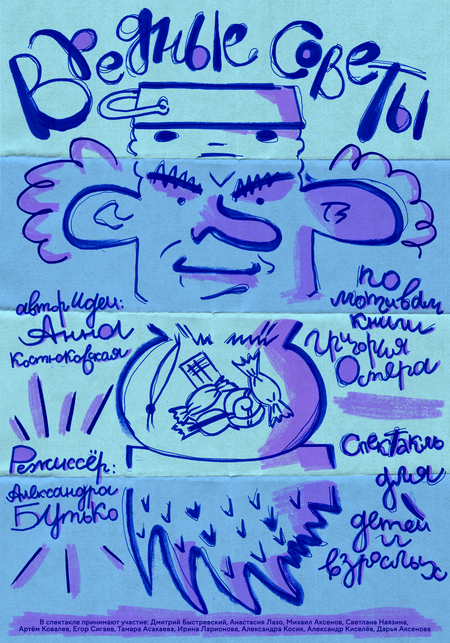 Вредные советы
автор идеи:
Анна
Костюковская
по
мотивам
книги
Григория
Остера
Режиссёр:
Александра
Бутько
Спектакль
для
детей
и
взрослых
В спектакле принимают участие: Дмитрий Быстревский, Анастасия Лазо, Михаил Аксенов, Светлана Наязина,
Артём Ковалев, Егор Сигаев, Тамара Асакаева, Ирина Ларионова, Александра Косик, Александр Киселёв, Дарья Аксенова